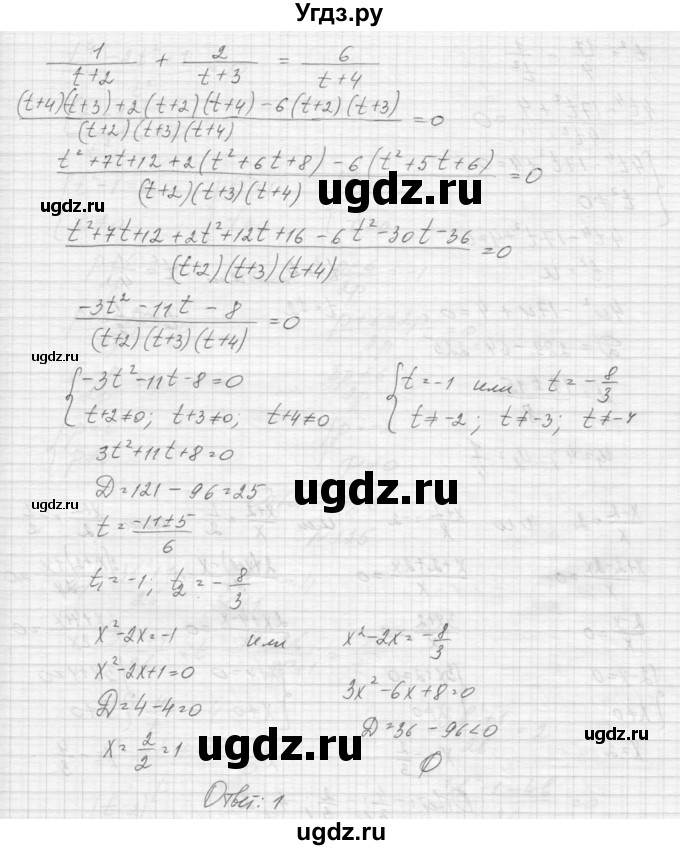 Угдз.ру
1/(t+2) + 2/(t+3) = 6/(t+4)
((t+4)(t+3)+2(t+2)(t+4)-6(t+2)(t+3))/((t+2)(t+3)(t+4)) =0
(t²+7t+12+2(t²+6t+8)-6(t²+5t+6))/((t+2)(t+3)(t+4)) =0
ugdz.ru
ugdz.ru
(t²+7t+12+2t²+12t+16-6t²-30t-36)/((t+2)(t+3)(t+4)) =0
(-3t²-11t-8)/((t+2)(t+3)(t+4)) =0
ugdz.ru
{-3t²-11t-8=0
t+2≠0; t+3≠0; t+4≠0
{t=-1 или t=-8/3
t≠-2; t≠-3; t≠-4
3t²+11t+8=0
D=121-96=25
ugdz.ru
ugdz.ru
t=(-11±5)/6
t₁=-1; t₂=-8/3
x²-2x=-1 или x²-2x=-8/3
x²-2x+1=0
3x²-6x+8=0
D=4-4=0
D=36-96<0
x=2/2=1
ugdz.ru
∅
Ответ: 1
ugdz.ru
ugdz.ru